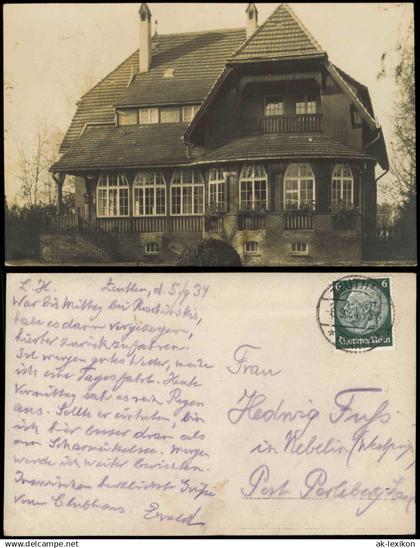 L. H. Zeuthen, d. 5/9 34
War bis Mittag bei
habe es dann vorgezogen,
hierher zurückzufahren.
Ist morgen gutes Wetter, mache
ich eine Tagesfahrt. Heute
Vormittag sah es nach Regen
aus. Sollte er eintreten, bin
ich hier besser dran als
am Scharmützelsee. Morgen
werde ich weiter berichten.
Inzwischen herzlichste Grüße
vom Clubhaus. Ewald
6 6
Deutsches Reich
Frau
Hedwig Fuß
in Kebelin (Westprign.)
Post Perleberg-Land
ak-lexikon
© ak-lexikon.de